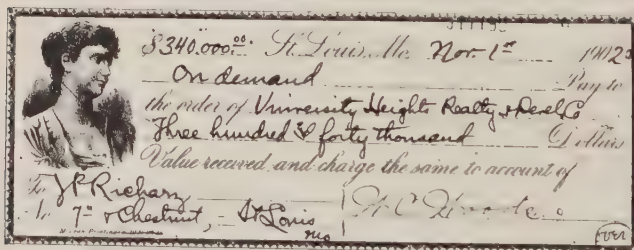 $340.000.00 St. Louis, Mo. Nov. 1st 1902
On demand Pay to
the order of University Heights Realty & Devel Co
Three hundred & forty thousand Dollars
Value received and charge the same to account of
To J P Richarz
No 7th & Chestnut, - St Louis
Mo